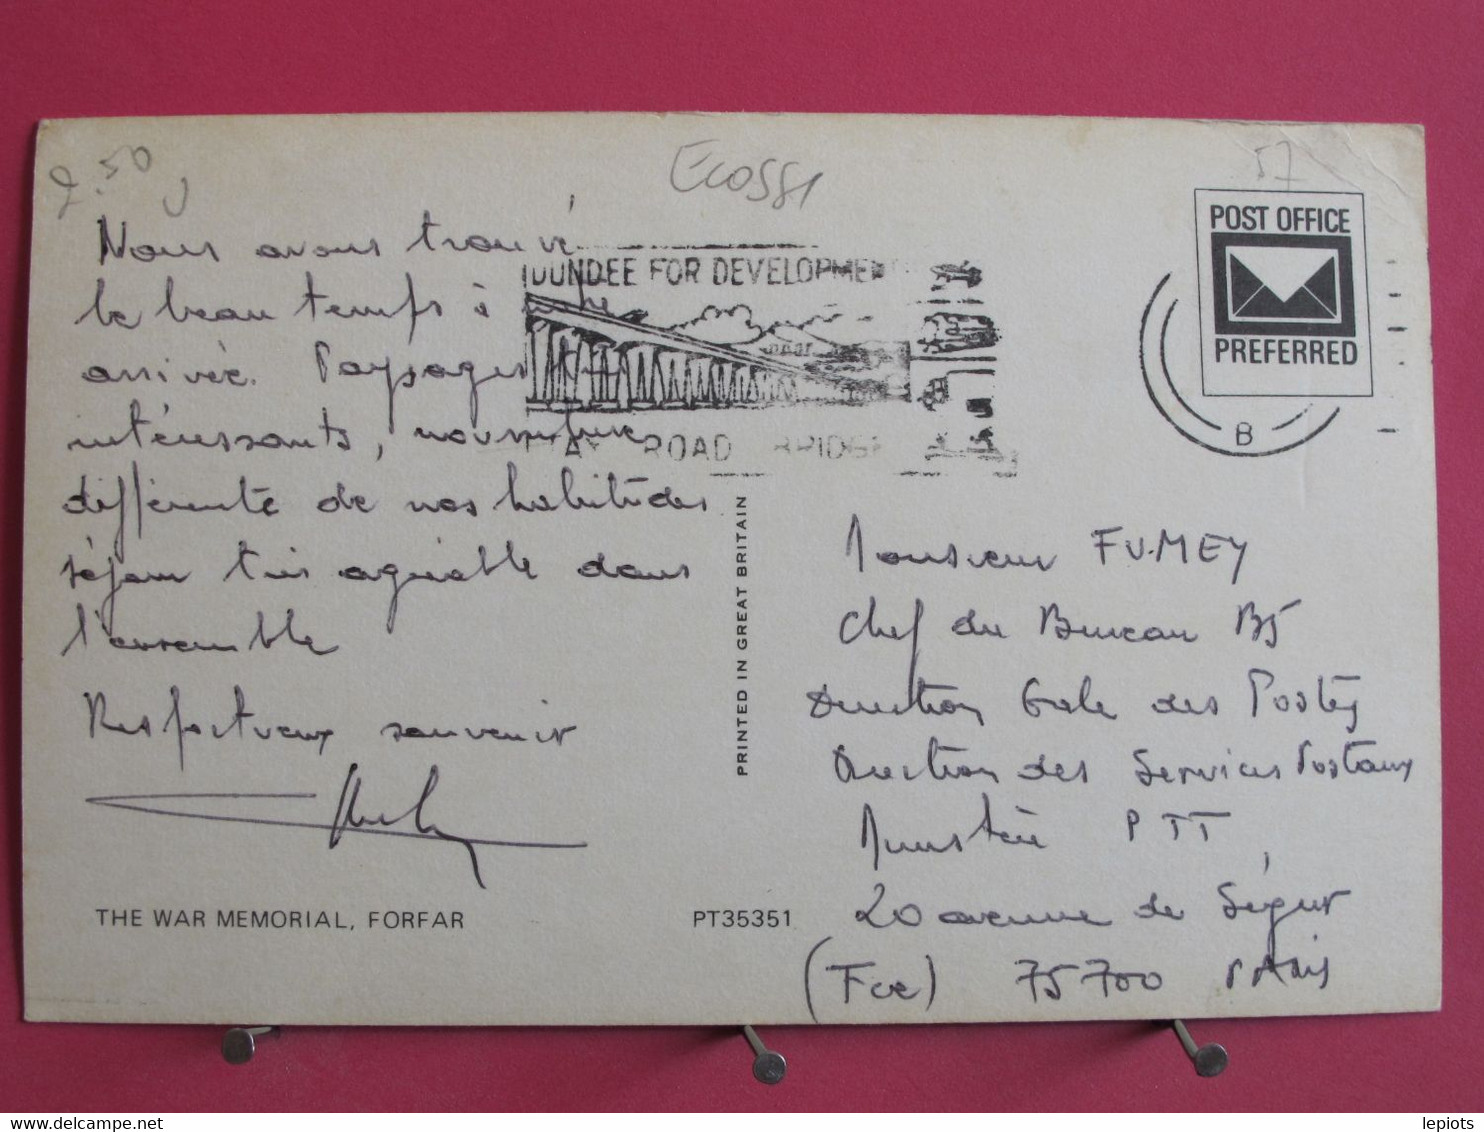 2.50
Ecosse
57
POST OFFICE
PREFERRED
DUNDEE FOR DEVELOPMENT
TAY ROAD BRIDGE
B
Nous avons trouvé
le beau temps à notre
arrivée. Paysages très
intéressants, nourriture
différente de nos habitudes
séjour très agréable dans
l'ensemble
Respectueux souvenir
THE WAR MEMORIAL, FORFAR
PT35351
PRINTED IN GREAT BRITAIN
Monsieur FUMEY
Chef du Bureau B5
Direction Gale des Postes
Direction des Services Postaux
Ministère PTT
20 avenue de Ségur
(Fce) 75700 PARIS
lepiots